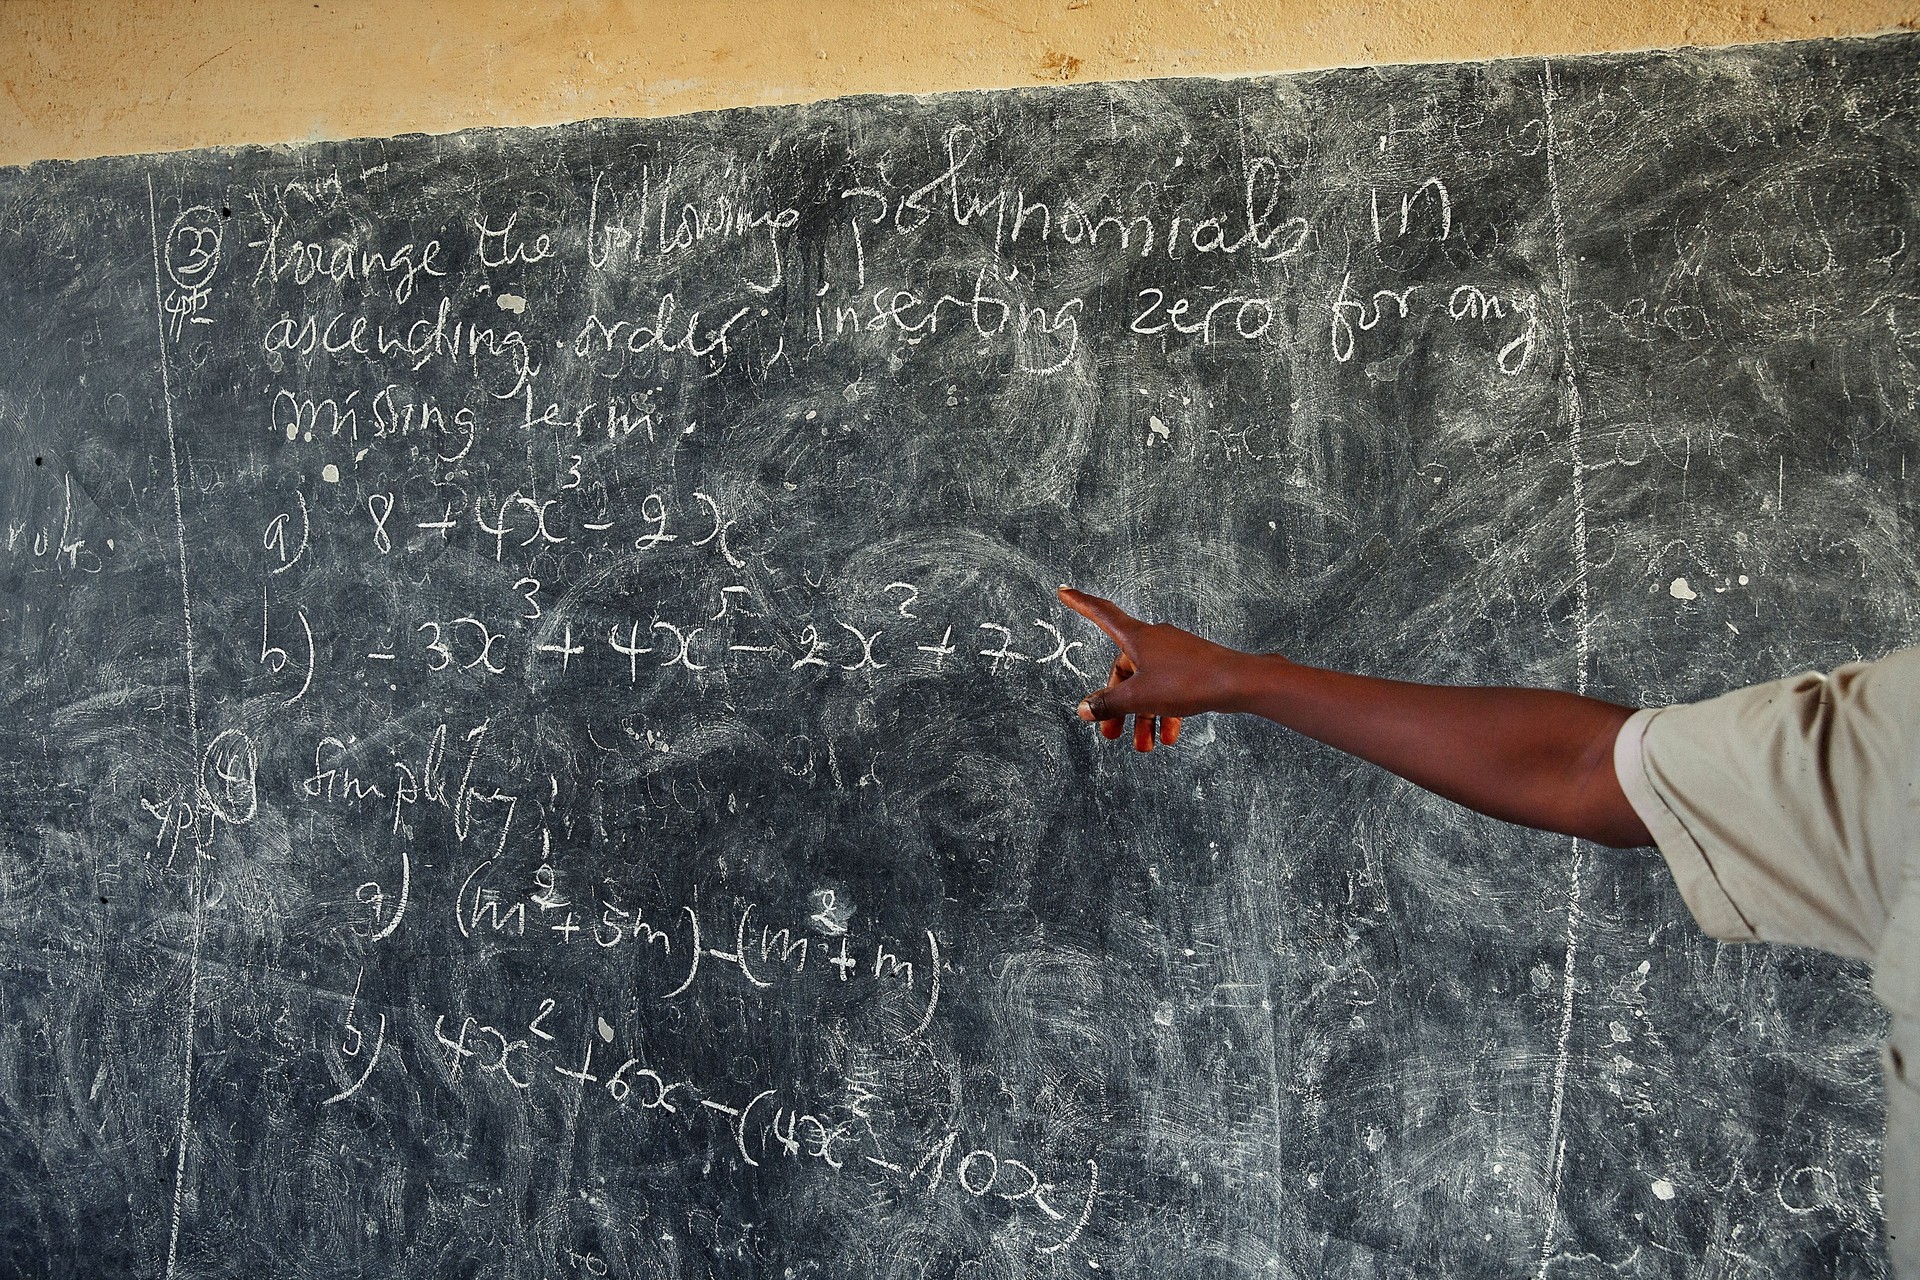 ③ Arrange the following polynomials in
4pts ascending order, inserting zero for any
missing term.
a) 8 + 4x³ - 2x
b) - 3x³ + 4x⁵ - 2x² + 7x
④ Simplify;
4pts
a) (m² + 5m) - (m² + m)
b) 4x² + 6x - (4x² - 10x)